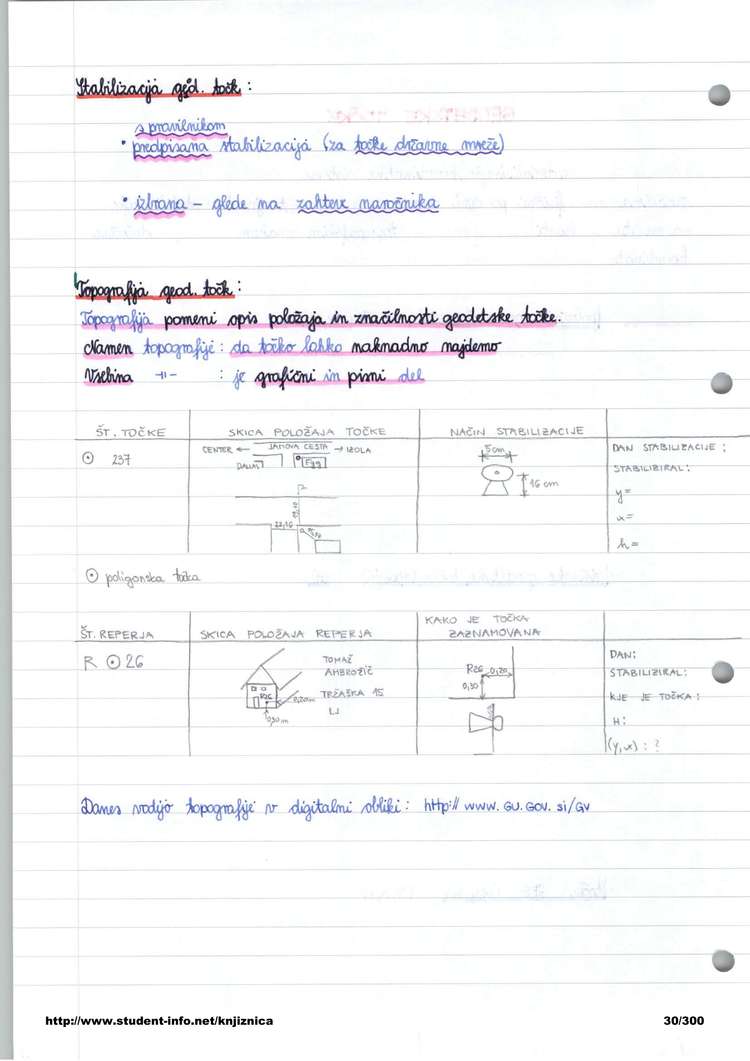 Stabilizacija geod. točk :
s pravilnikom
• predpisana stabilizacija (za točke državne mreže)
• izbrana – glede na zahteve naročnika
Topografija geod. točk :
Topografija pomeni opis položaja in značilnosti geodetske točke.
Namen topografije : da točko lahko naknadno najdemo
Vsebina -11- : je grafični in pisni del
ŠT. TOČKE SKICA POLOŽAJA TOČKE NAČIN STABILIZACIJE
⊙ 237
CENTER ← JAMOVA CESTA → IZOLA
FGG
5cm
16 cm
DAN STABILIZACIJE :
STABILIZIRAL :
y =
x =
h =
⊙ poligonska točka
ŠT. REPERJA SKICA POLOŽAJA REPERJA KAKO JE TOČKA
ZAZNAMOVANA
R ⊙ 26
TOMAŽ
AMBROŽIČ
TRŽAŠKA 15
LJ
R26
0,20m
0,30m
R26 0,20
0,30
DAN:
STABILIZIRAL:
KJE JE TOČKA :
H:
(y,x) : ?
Danes vodijo topografije v digitalni obliki : http:// www. GU. GOV. si/GV
http://www.student-info.net/knjiznica 30/300